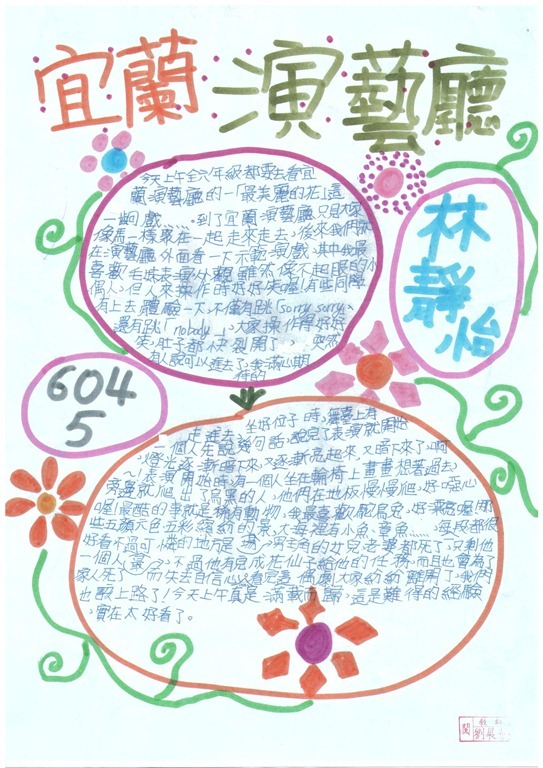 宜蘭演藝廳
林靜怡
604
5
今天上午全六年級都要去看宜
蘭演藝廳的「最美麗的花」這
一齣偶戲……到了宜蘭演藝廳,只見大家
像馬一樣聚在一起走來走去,後來我們就
在演藝廳外面看一下示範演戲,其中我最
喜歡毛妹表演,外觀雖然像不起眼的小
偶人,但人來操作時好好笑喔!有些同學
有上去體驗一下,不僅有跳「sorry sorry」、
還有跳「nobody」,大家操作得好好
笑,肚子都快裂開了。突然
有人說可以進去了,我滿心期
待的
走進去,坐好位子時,舞臺上有
一個人先說幾句話,說完了表演就開始
,燈光逐漸暗下來,又逐漸亮起來,又暗下來了,啊
~表演開始時,有一個人坐在輪椅上畫畫想著過去,
旁邊就爬出了烏黑的人,他們在地板慢慢爬,好噁心
喔!最酷的事就是擁有動物,我最喜歡
些五顏六色五彩繽紛的景,大海裡有小魚、章魚……,每段都很
好看,不過可憐的地方是
一個人
家人死了 而失去自信心,看完這偶劇大家紛紛離開了,我們
也踏上路了!今天上午真是滿載而歸,這是難得的經驗
,實在太好看了。
教師
閱